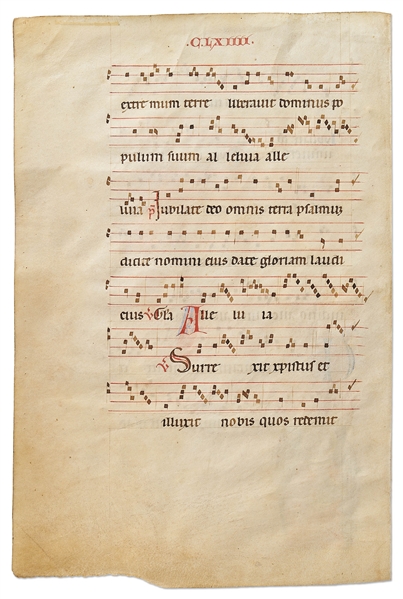 .CLXIIII.
extre mum terre liberavit dominus po
pulum suum al leluia alle
luia ps Jubilate deo omnis terra psalmum
dicite nomini eius date gloriam laudi
eius v Gla Alle lu ia
v Surre xit xpistus et
illuxit nobis quos redemit